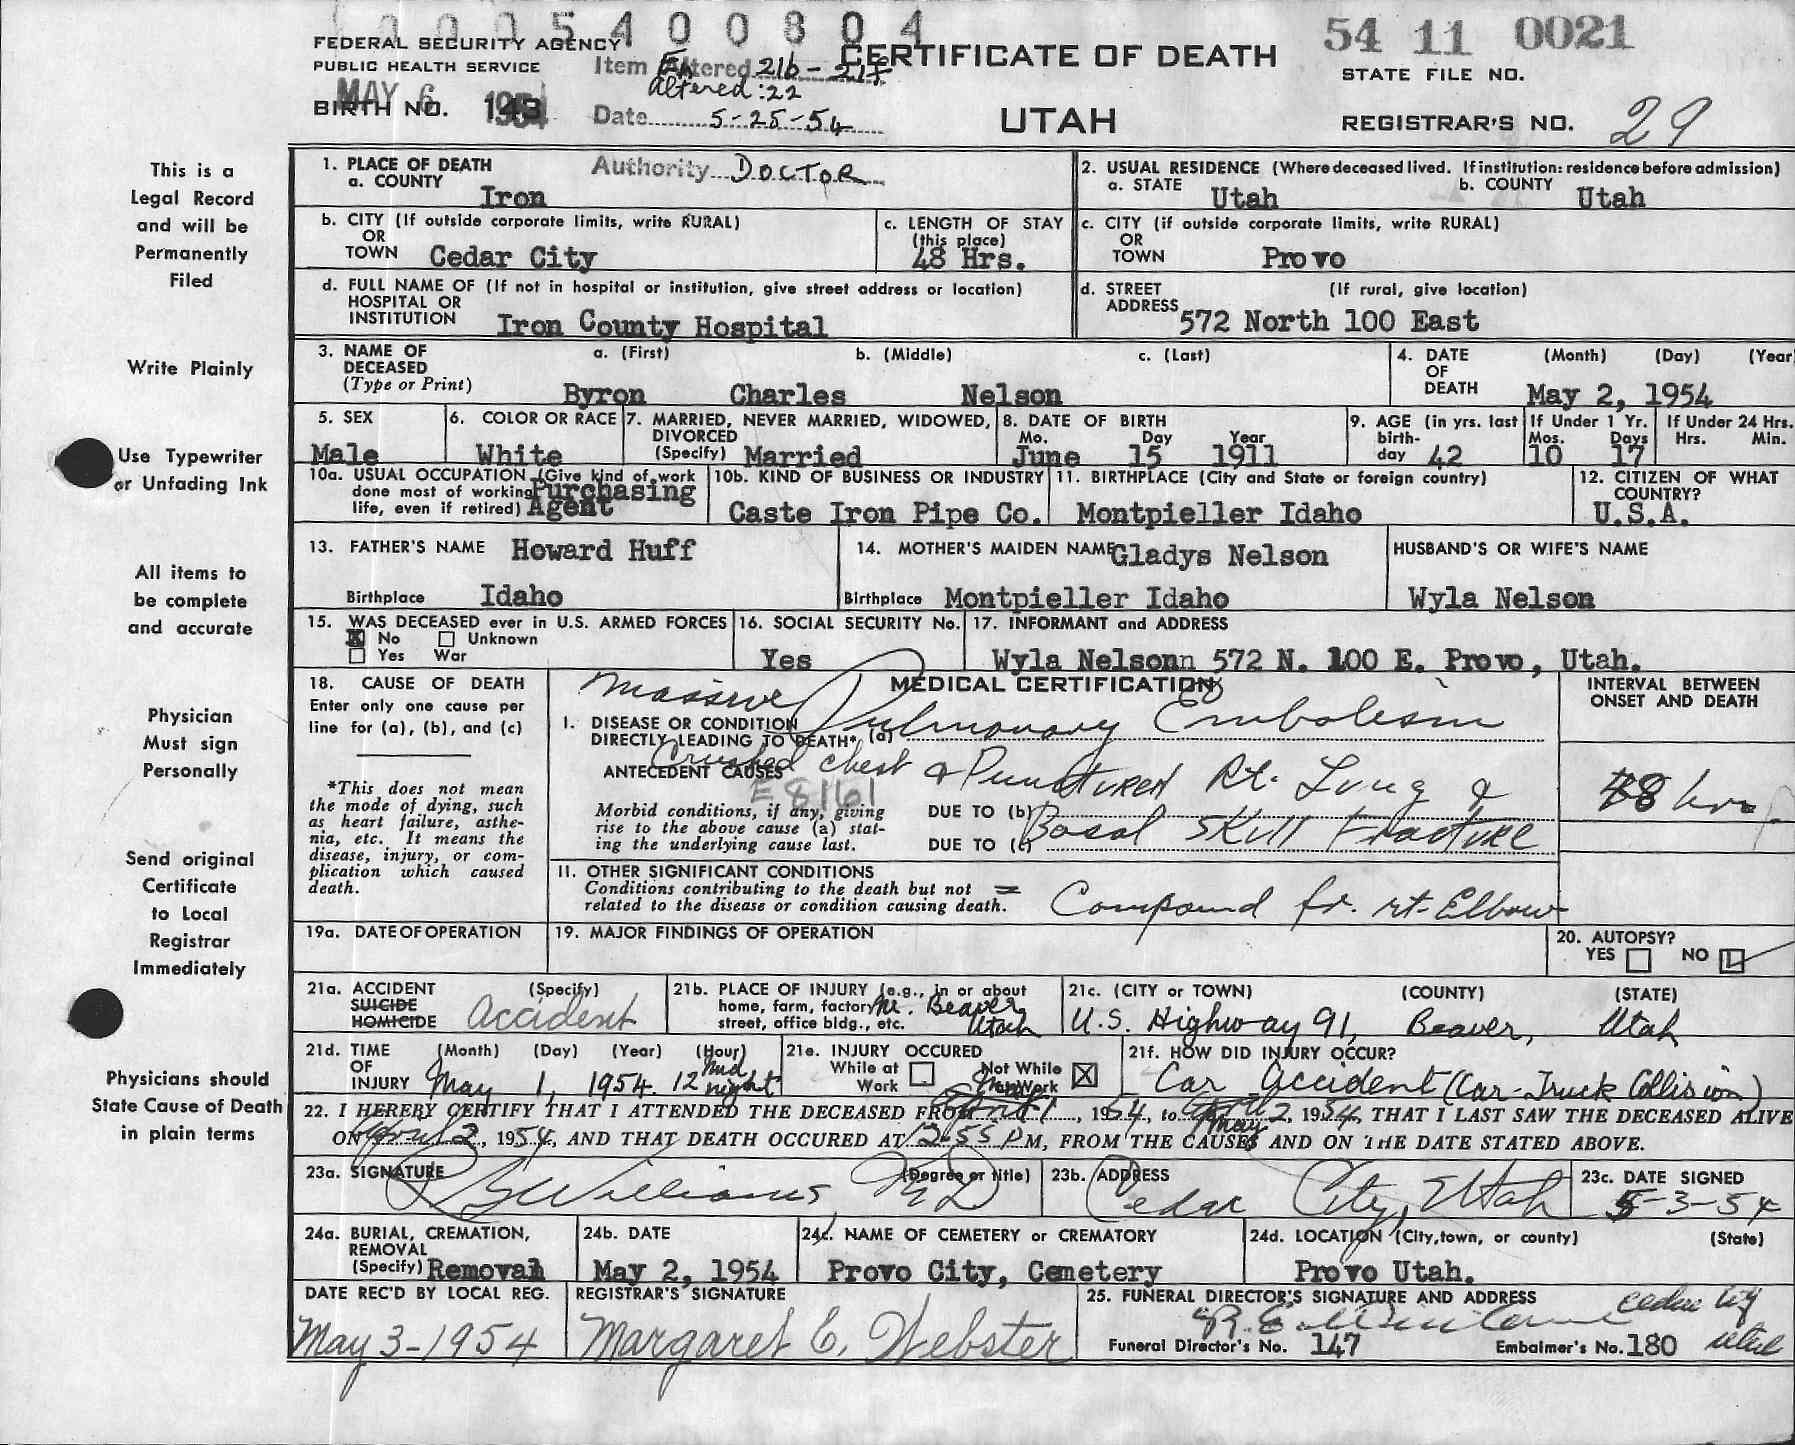 0005400804
FEDERAL SECURITY AGENCY
PUBLIC HEALTH SERVICE
MAY 6 1954
BIRTH NO. 143
Item Entered 21b - 21f
altered: 22
Date 5-25-54
Authority DOCTOR
CERTIFICATE OF DEATH
UTAH
54 11 0021
STATE FILE NO.
REGISTRAR'S NO. 29
This is a
Legal Record
and will be
Permanently
Filed
Write Plainly
Use Typewriter
or Unfading Ink
All items to
be complete
and accurate
Physician
Must sign
Personally
Send original
Certificate
to Local
Registrar
Immediately
Physicians should
State Cause of Death
in plain terms
1. PLACE OF DEATH
a. COUNTY Iron
2. USUAL RESIDENCE (Where deceased lived. If institution: residence before admission)
a. STATE Utah b. COUNTY Utah
b. CITY (If outside corporate limits, write RURAL)
OR
TOWN Cedar City
c. LENGTH OF STAY
(this place)
48 Hrs.
c. CITY (if outside corporate limits, write RURAL)
OR
TOWN Provo
d. FULL NAME OF (If not in hospital or institution, give street address or location)
HOSPITAL OR
INSTITUTION Iron County Hospital
d. STREET (If rural, give location)
ADDRESS 572 North 100 East
3. NAME OF DECEASED (Type or Print)
a. (First) b. (Middle) c. (Last)
Byron Charles Nelson
4. DATE OF DEATH (Month) (Day) (Year
May 2, 1954
5. SEX
Male
6. COLOR OR RACE
White
7. MARRIED, NEVER MARRIED, WIDOWED,
DIVORCED
(Specify) Married
8. DATE OF BIRTH
Mo. Day Year
June 15 1911
9. AGE (in yrs. last
birth-
day 42
If Under 1 Yr.
Mos. Days
10 17
If Under 24 Hrs.
Hrs. Min.
10a. USUAL OCCUPATION (Give kind of work
done most of working
life, even if retired) Purchasing
Agent
10b. KIND OF BUSINESS OR INDUSTRY
Caste Iron Pipe Co.
11. BIRTHPLACE (City and State or foreign country)
Montpieller Idaho
12. CITIZEN OF WHAT
COUNTRY?
U.S.A.
13. FATHER'S NAME Howard Huff
Birthplace Idaho
14. MOTHER'S MAIDEN NAME Gladys Nelson
Birthplace Montpieller Idaho
HUSBAND'S OR WIFE'S NAME
Wyla Nelson
15. WAS DECEASED ever in U.S. ARMED FORCES
No Unknown
Yes War
16. SOCIAL SECURITY No.
Yes
17. INFORMANT and ADDRESS
Wyla Nelsonn 572 N. 100 E. Provo, Utah.
18. CAUSE OF DEATH
Enter only one cause per
line for (a), (b), and (c)
*This does not mean
the mode of dying, such
as heart failure, asthe-
nia, etc. It means the
disease, injury, or com-
plication which caused
death.
MEDICAL CERTIFICATION
I. DISEASE OR CONDITION
DIRECTLY LEADING TO DEATH* (a) Massive Pulmonary Embolism
ANTECEDENT CAUSES
E8161
Morbid conditions, if any, giving
rise to the above cause (a) stat-
ing the underlying cause last.
Crushed chest & Punctured Rt. Lung &
DUE TO (b)
DUE TO (c) Basal Skull Fracture
INTERVAL BETWEEN
ONSET AND DEATH
48 hrs
11. OTHER SIGNIFICANT CONDITIONS
Conditions contributing to the death but not
related to the disease or condition causing death.
= Compound fr. rt. Elbow
19a. DATE OF OPERATION
19. MAJOR FINDINGS OF OPERATION
20. AUTOPSY?
YES NO
21a. ACCIDENT (Specify)
SUICIDE
HOMICIDE Accident
21b. PLACE OF INJURY (e.g., in or about
home, farm, factory
street, office bldg., etc.
Nr. Beaver
Utah
21c. (CITY or TOWN) (COUNTY) (STATE)
U.S. Highway 91, Beaver, Utah
21d. TIME (Month) (Day) (Year) (Hour)
OF
INJURY May 1, 1954. 12 Mid
night
21e. INJURY OCCURED
While at Work
Not While at Work
21f. HOW DID INJURY OCCUR?
Car Accident (Car-Truck Collision)
22. I HEREBY CERTIFY THAT I ATTENDED THE DECEASED FROM April 1, 1954, to April May 2, 1954, THAT I LAST SAW THE DECEASED ALIVE
ON April 2, 1954, AND THAT DEATH OCCURED AT 12-55 PM, FROM THE CAUSES AND ON THE DATE STATED ABOVE.
23a. SIGNATURE (Degree or title)
Williams MD
23b. ADDRESS
Cedar City, Utah
23c. DATE SIGNED
5-3-54
24a. BURIAL, CREMATION,
REMOVAL
(Specify) Removal
24b. DATE
May 2, 1954
24c. NAME OF CEMETERY or CREMATORY
Provo City, Cemetery
24d. LOCATION (City, town, or county) (State)
Provo Utah.
DATE REC'D BY LOCAL REG.
May 3-1954
REGISTRAR'S SIGNATURE
Margaret E. Webster
25. FUNERAL DIRECTOR'S SIGNATURE AND ADDRESS
Cedar City
Utah
Funeral Director's No. 147 Embalmer's No. 180